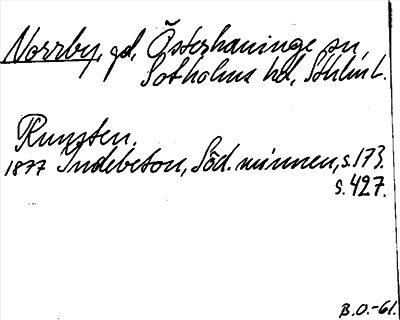 Norrby, gd, Österhaninge sn,
Sotholms hd, Sthlm L.
Runsten.
1877 Indebetou, Söd. minnen, s. 173.
s. 427.
B.O.-61.